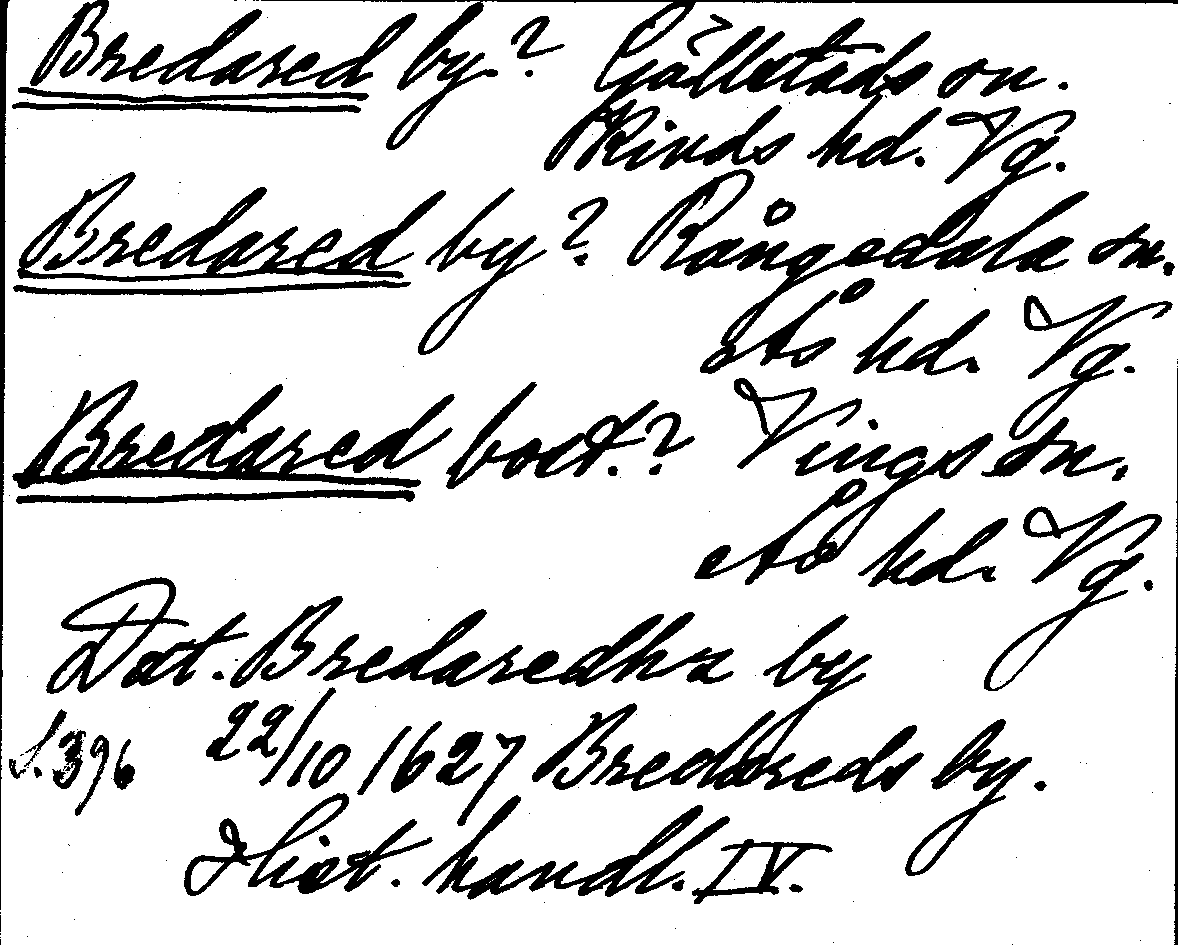 Bredared by? Gällstads sn.
Kinds hd. Vg.
Bredared by? Rångedala sn.
Ås hd. Vg.
Bredared bost.? Vings sn.
Ås hd. Vg.
Dat. Bredaredhz by
S. 396 22/10 1627 Bredareds by.
Hist. handl. IV.